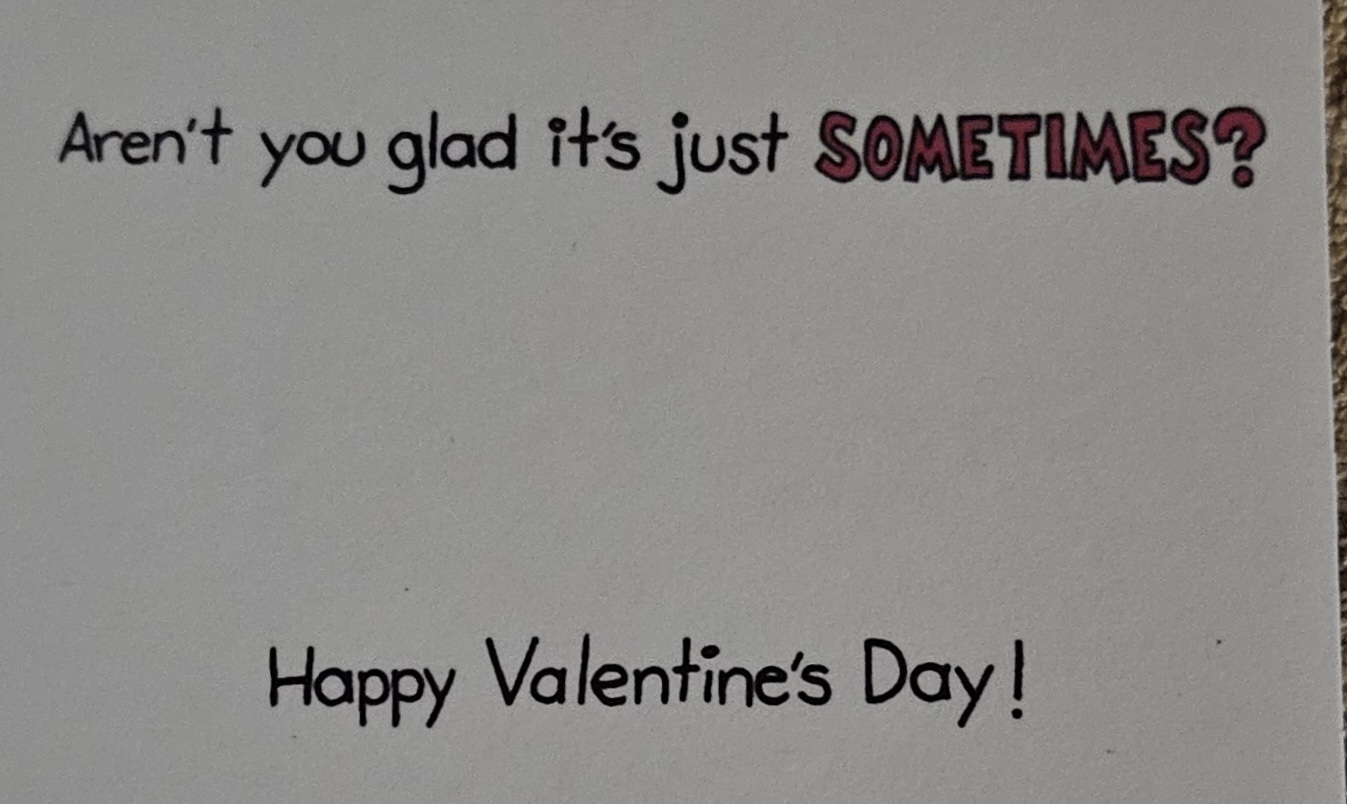 Aren't you glad it's just SOMETIMES?
Happy Valentine's Day!